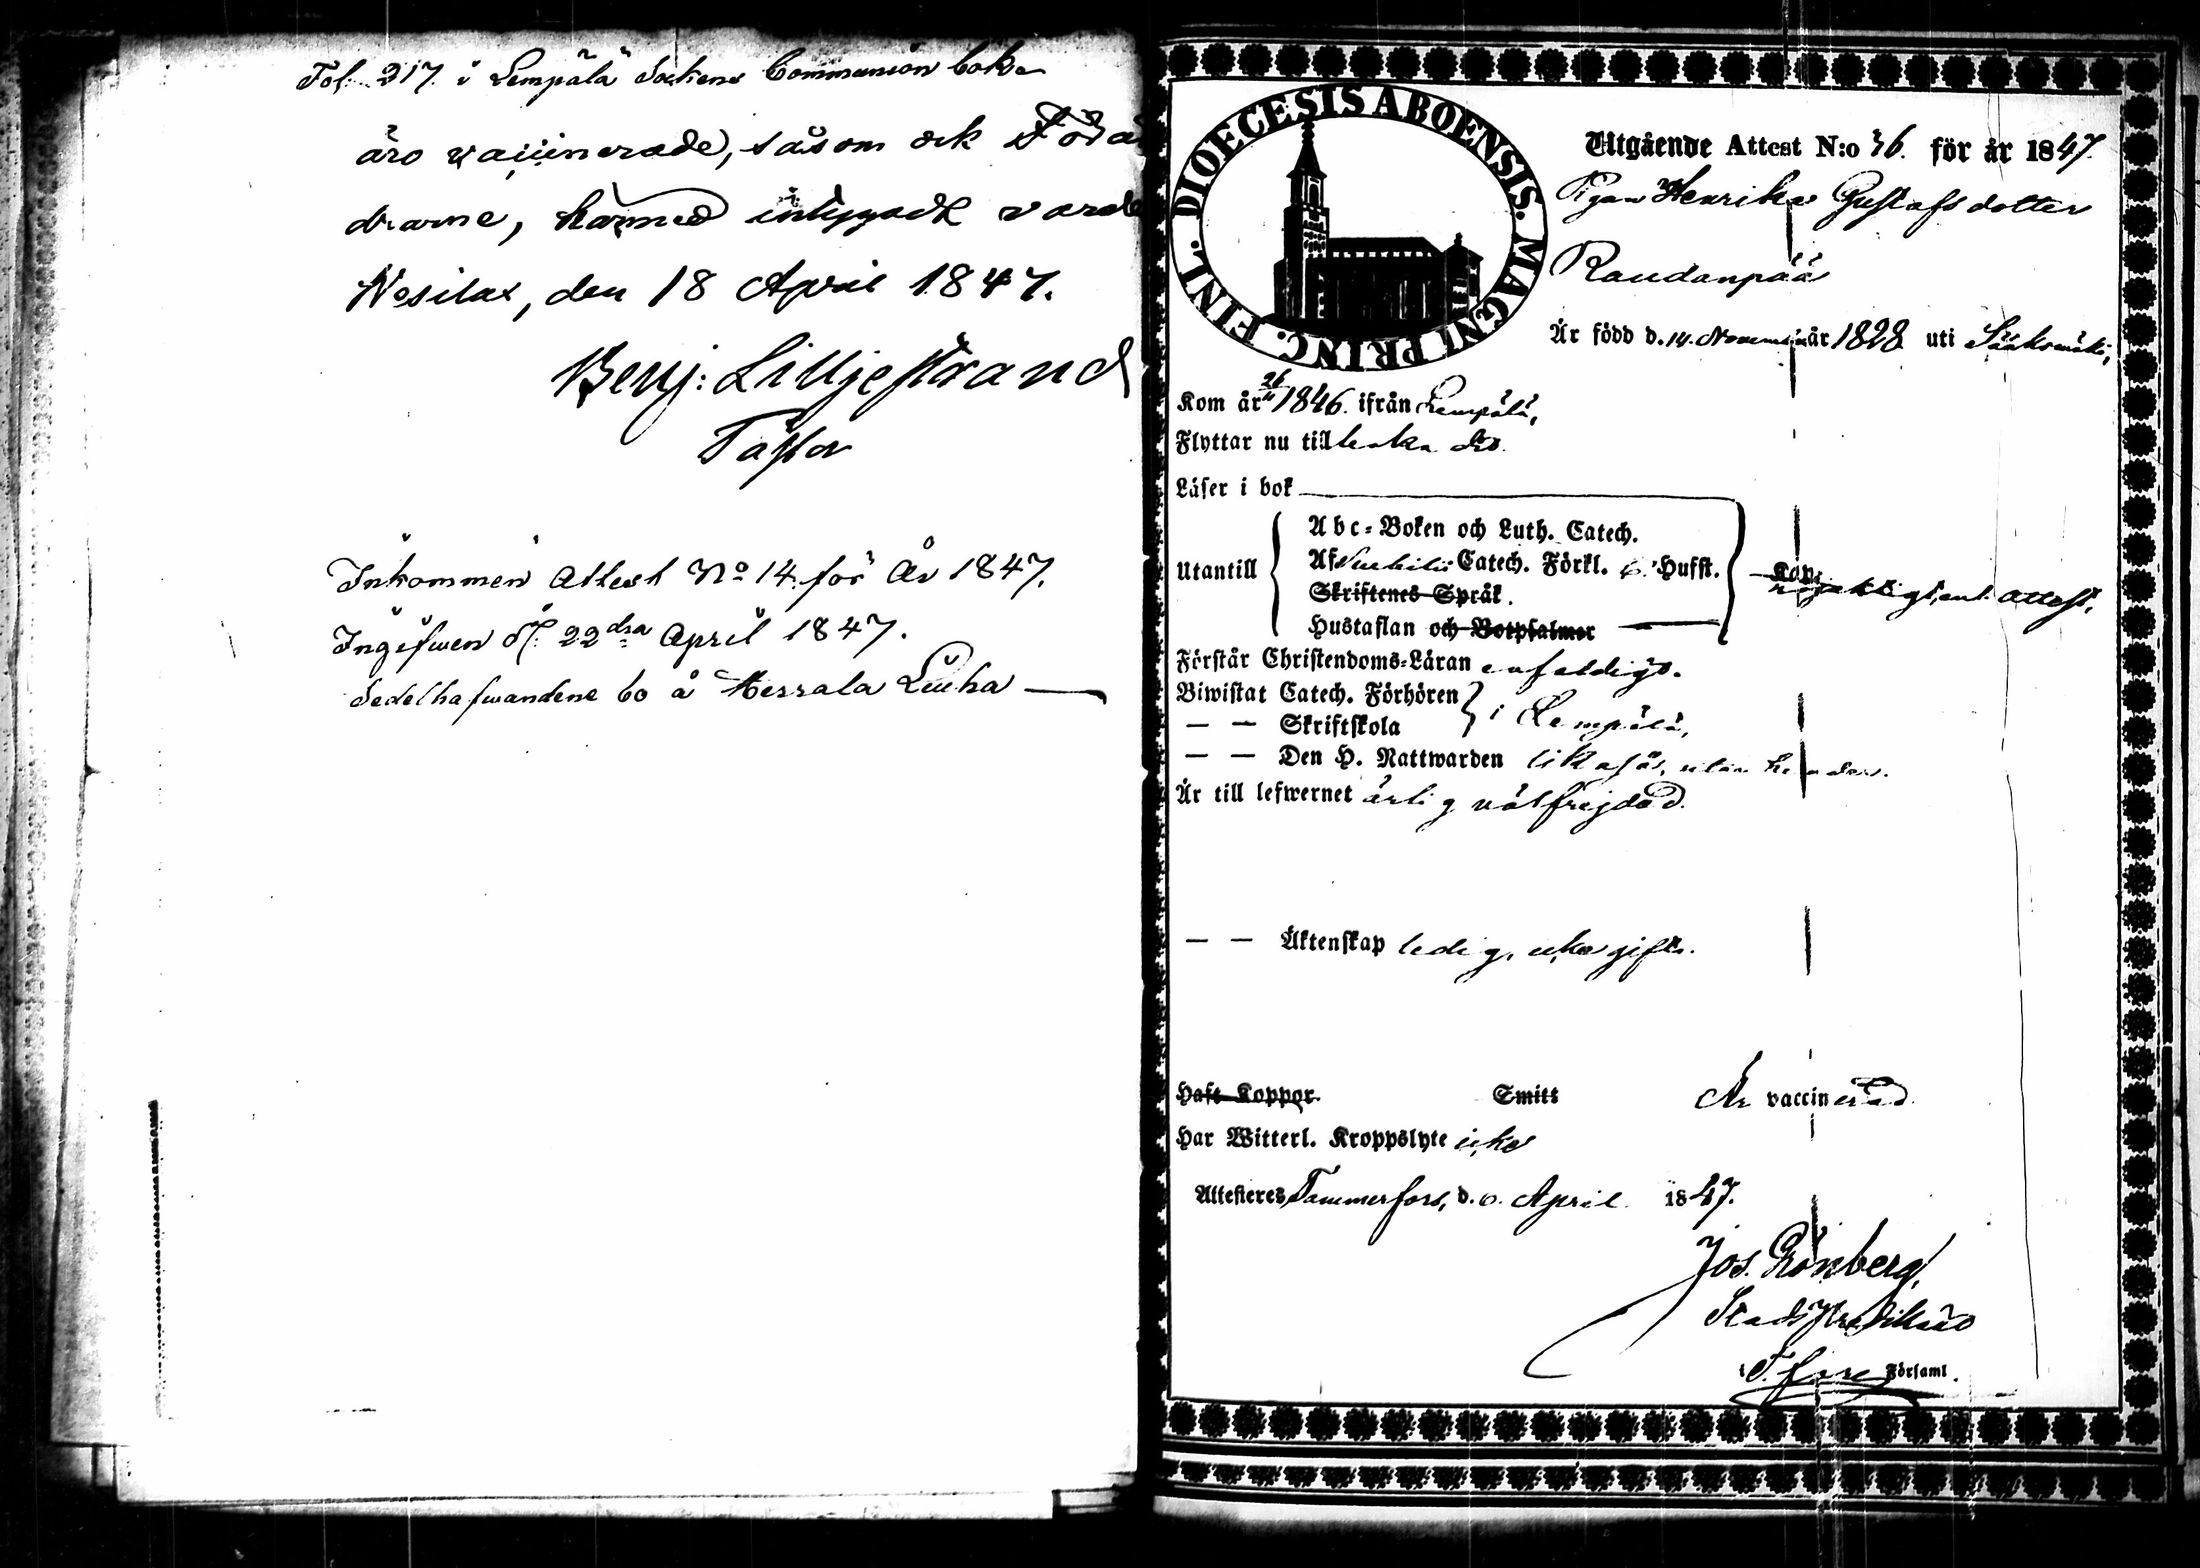 Fol. 217. i Lempälä Sockens Communion bok.
äro vaccinerade, såsom ock Föräl
drarne, harmed intygadt varde
Wesilax, den 18 April 1847.
Benj: Lilljestrand
Pastor
Inkommen Attest No 14. för År 1847.
Ingifwen d. 22dra April 1847.
Sedelhafwandene bo å Herrala Luha
FINL. DIOECESIS ABOENSIS. MAGNI PRINC.
Utgående Attest N:o 36. för år 1847.
Pigan Henrika Gustafsdotter
Raudanpää
Är född d. 14. November år 1828 uti Sääksmäki,
Kom år 26/11 1846. ifrån Lempälä,
Flyttar nu till
Läser i bok
Utantill
Abc-Boken och Luth. Catech.
Af Svebilii Catech. Förkl. Husst.
Skriftenes Språk.
Hustaflan och Botpsalmer
enl. attest,
Förstår Christendoms-Läran enfaldigt.
Biwistat Catech. Förhören
— — Skriftskola
i Lempälä,
— — Den H. Nattwarden likaså, utan hinder.
Är till lefwernet ärlig välfrejdad.
— — Äktenskap ledig, icke gift.
Haft Koppor. Smitt Är vaccinerad.
Har Witterl. Kroppslyte icke
Attesteres Tammerfors, d. 6. April 1847.
Jos. Grönberg,
Stads Predikant
i T.fors Församl.